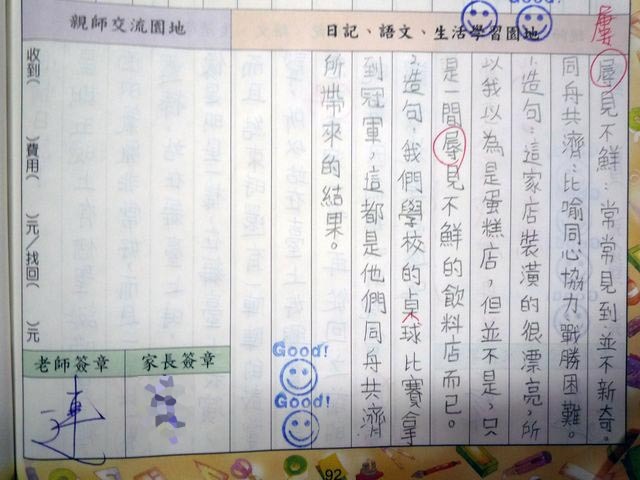 親師交流園地
日記、語文、生活學習園地
屢
屢見不鮮:常常見到並不新奇。
同舟共濟:比喻同心協力,戰勝困難。
1.造句:這家店裝潢的很漂亮,所
以我以為是蛋糕店,但並不是,只
是一間屢見不鮮的飲料店而已。
2.造句:我們學校的桌球比賽拿
到冠軍,這都是他們同舟共濟
所帶來的結果。
收到( )費用( )元/找回( )元
老師簽章
家長簽章
連
Good!
Good!
92